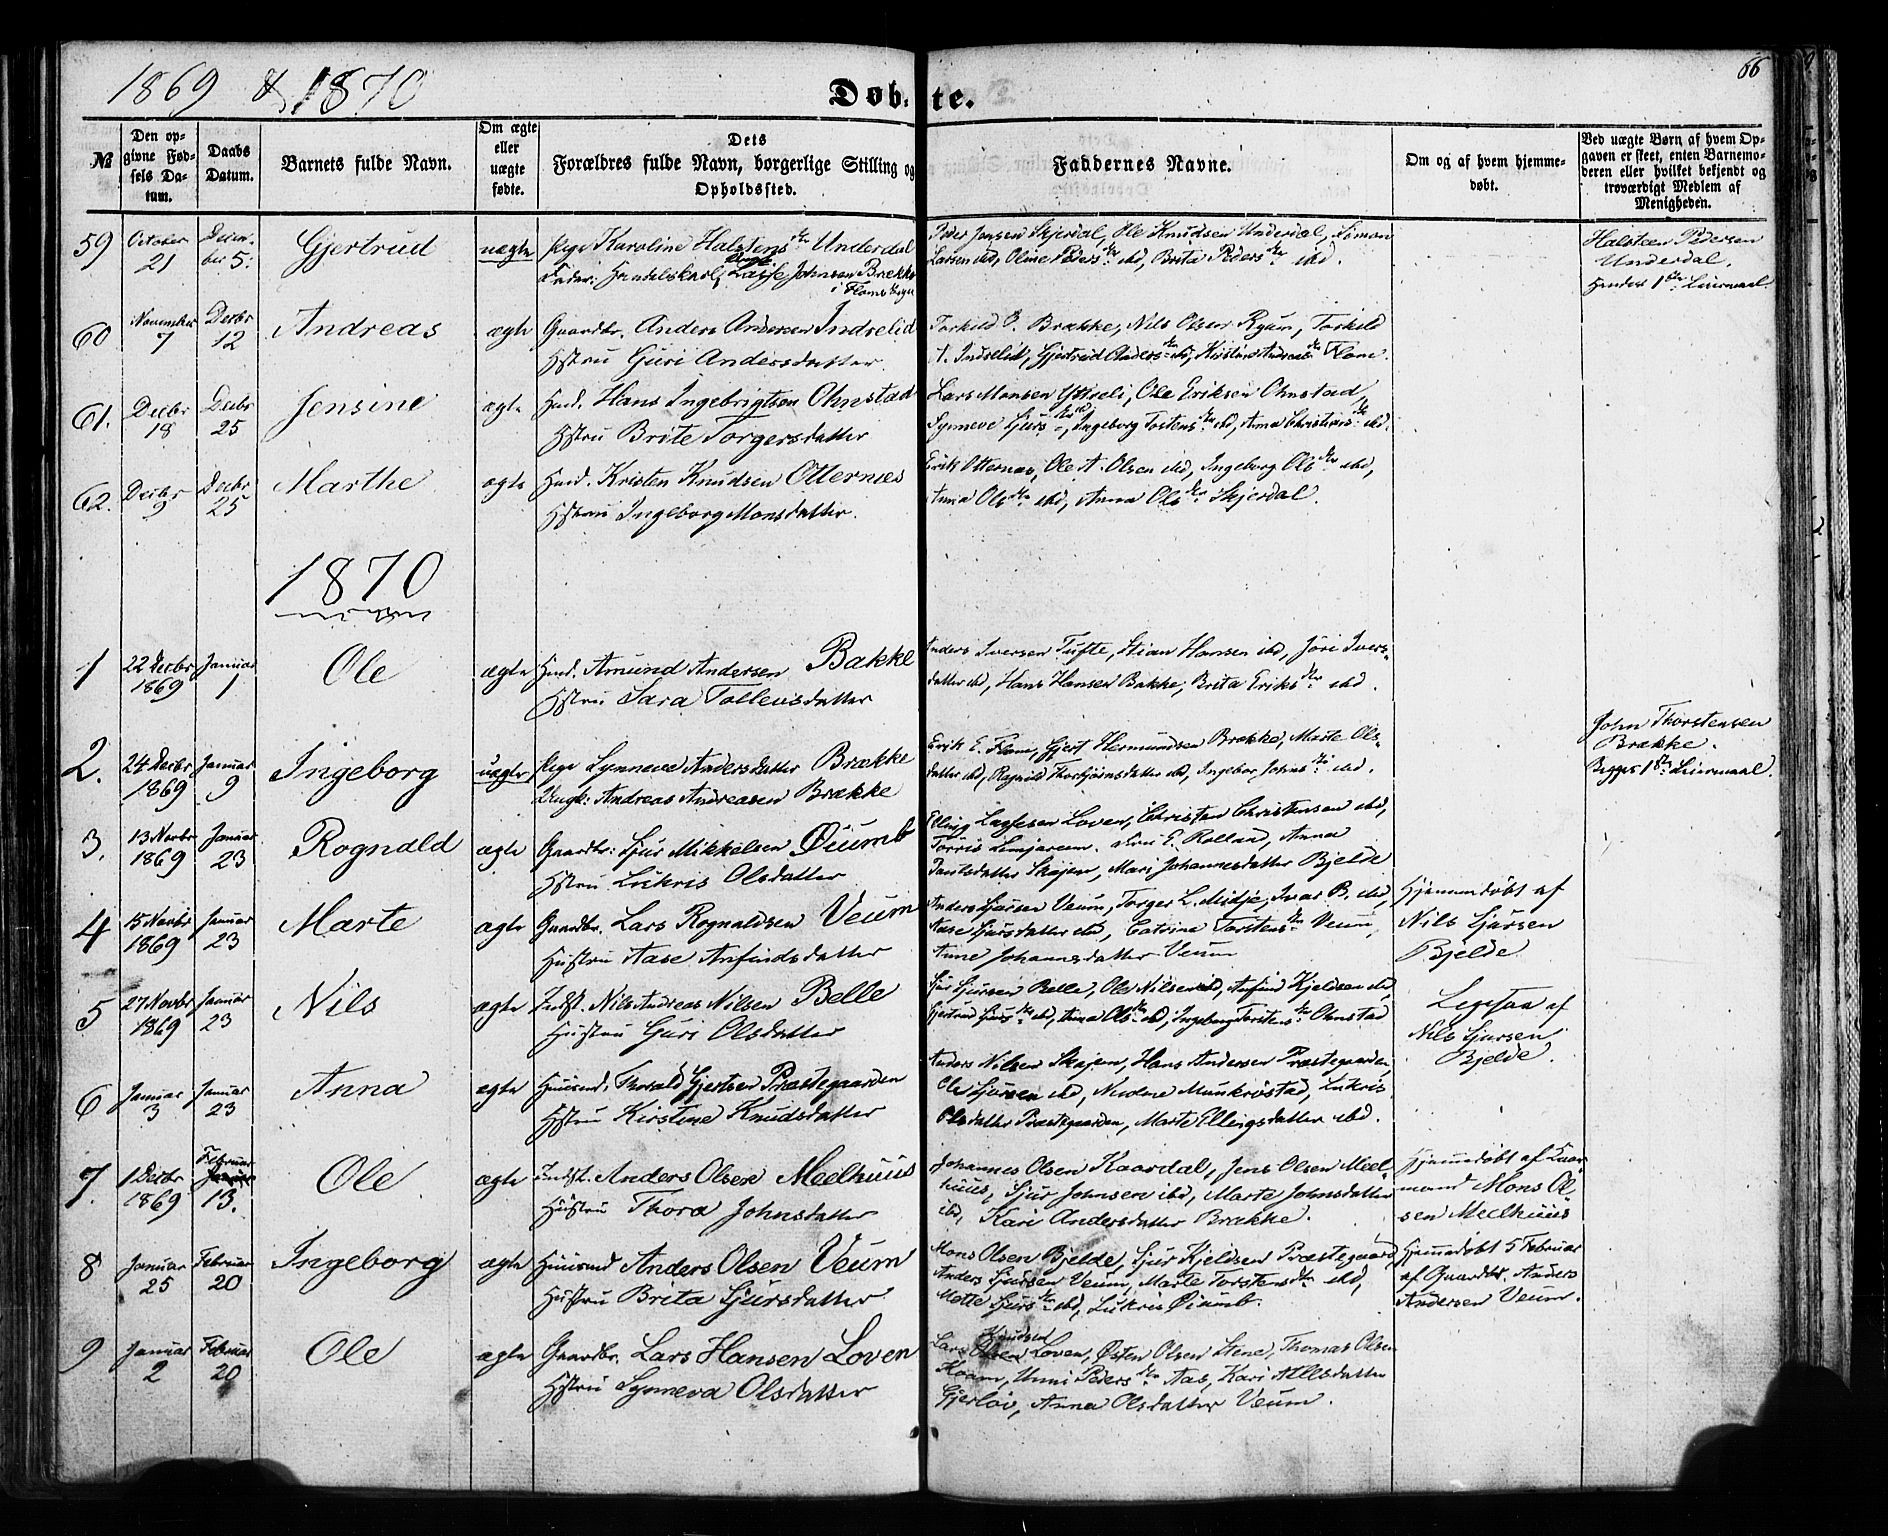 1869 & 1870
Døbte.
66
No
Den opgivne Fødsels Datum.
Daabs Datum.
Barnets fulde Navn.
Om ægte eller uægte fødte.
Dets Forældres fulde Navn, borgerlige Stilling og Opholdssted.
Faddernes Navne.
Om og af hvem hjemmedøbt.
Ved uægte Børn af hvem Opgaven er skeet, enten Barnemoderen eller hvilket bekjendt og troværdigt Medlem af Menigheden.
59 October 21 Decem-ber 5. Gjertrud uægte
Pige Karoline Halstensdtr Underdal
Fader: Handelskarl, Ungk. Lasse Johnsen Brække i Flams Sogn
Peder Jensen Skjerdal, Ole Knudsen Underdal, Simon
Larsen ibd, Oline Pedersdtr ibd, Brita Pedersdtr ibd.
Halsteen Pedersen
Underdal.
Hendes 1ste Leiermaal.
60 November 7 Decbr 12 Andreas ægte
Gaardbr. Anders Andersen Indrelid
Hstru Guri Andersdatter.
Torkild O. Brække, Nils Olsen Ryum, Torkild
A. Indrelid, Gjertrud Andersdtr ibd, Kirstine Andreasdtr Flam.
61. Decbr 18 Decbr 25 Jensine ægte
Husd. Hans Ingebrigtsen Ohnstad
Hstru Brite Torgersdatter
Lars Monsen Yttreli, Ole Eriksen Ohnstad,
Synneve Sjursdtr ibd, Ingeborg Tostensdtr ibd, Anna Christiansdtr ibd.
62. Decbr 9 Decbr 25 Marthe ægte
Husd. Kristen Knudsen Otternes
Hstru Ingeborg Monsdatter.
Erik Otternes, Ole A. Olsen ibd, Ingeborg Olsdtr ibd,
Anna Olsdtr ibd, Anna Olsdtr Skjerdal.
1870
1 22 Decbr 1869 Januar 1 Ole ægte
Husd. Amund Andersen Bakke
Hstru Sara Tollevsdatter
Anders Iversen Tufte, Stian Hansen ibd, Jöri Ivers-
datter ibd, Hans Hansen Bakke, Brita Eriksdtr ibd.
2. 24 Decbr 1869 Januar 9 Ingeborg uægte
Pige Synneve Andersdatter Brække
Ungk: Andreas Andreasen Brække
Erik E. Flam, Gjert Hermundsen Brække, Marte Ols-
datter ibd, Ragnild Thorbjørnsdatter ibd, Ingebor Johnsdtr ibd.
John Thorstensen
Brække.
Begges 1ste Leiermaal.
3. 13 Novbr 1869 Januar 23 Rognald ægte
Gaardbr: Sjur Mikkelsen Øiumb
Hstru Lukris Olsdatter
Elling Lassesen Loven, Christen Christensen ibd,
Torris E. Rolland, Anna
Paulsdatter Skajem, Mari Johannesdatter Bjelde
4 15 Novbr 1869 Januar 23 Marte ægte
Gaardbr. Lars Rognaldsen Veum
Hustru Aase Anfindsdatter
Anders Sjursen Veum, Torger L. Midje, Ivar B. ibd,
Aase Sjursdatter ibd, Catrine Torstensdtr Veum,
Anne Johannesdatter Veum
Hjemmedøbt af
Nils Sjursen
Bjelde
5 27 Novbr 1869 Januar 23 Nils ægte
Indst. Nils Andreas Nilsen Belle
Hustru Guri Olsdatter
Sjur Sjursen Belle, Ole Nilsen ibd, Anfind Kjeldsen ibd,
Gjertrud Sjursdtr ibd, Anna Olsdtr ibd, Ingeborg Torstensdtr Ohnstad
Ligesaa af
Nils Sjursen
Bjelde.
6 Januar 3 Januar 23 Anna ægte
Huusmd. Thorald Gjertsen Præstegaarden
Hstru Kirstine Knudsdatter
Anders Nilsen Skajem, Hans Andersen Præstegaarden,
Ole Sjursen ibd, Nicoline Munkröstad, Lukris
Olsdatter Præstegaarden, Marte Ellingsdatter ibd.
7. 1 Decbr 1869 Februar 13. Ole ægte
Indst. Anders Olsen Meelhuus
Hustru Thora Johnsdatter
Johannes Olsen Kaardal, Jens Olsen Meel-
huus, Sjur Johnsen ibd, Marte Johnsdatter
ibd, Kari Andersdatter Brække.
Hjemmedøbt af Huus-
mand Mons Ol-
sen Meelhuus
8 Januar 25 Februar 20 Ingeborg ægte
Huusmd Anders Olsen Veum
Hustru Brita Sjursdatter
Mons Olsen Bjelde, Sjur Kjeldsen Præstegaard,
Anders Sjursen Veum, Marte Torstensdtr ibd,
Mette Sjursdtr ibd, Lukris Øiumb.
Hjemmedøbt 5 Februar
af Gaardbr. Anders
Andersen Veum.
9 Januar 2 Februar 20 Ole ægte
Gaardbr. Lars Hansen Loven
Hstru Synneva Olsdatter
Lars Knudsen Loven, Østen Olsen Stene, Thomas Olsen
Hoam, Unni Pedersdtr Aas, Kari Atlesdatter
Gjerløv, Anna Olsdatter Veum.